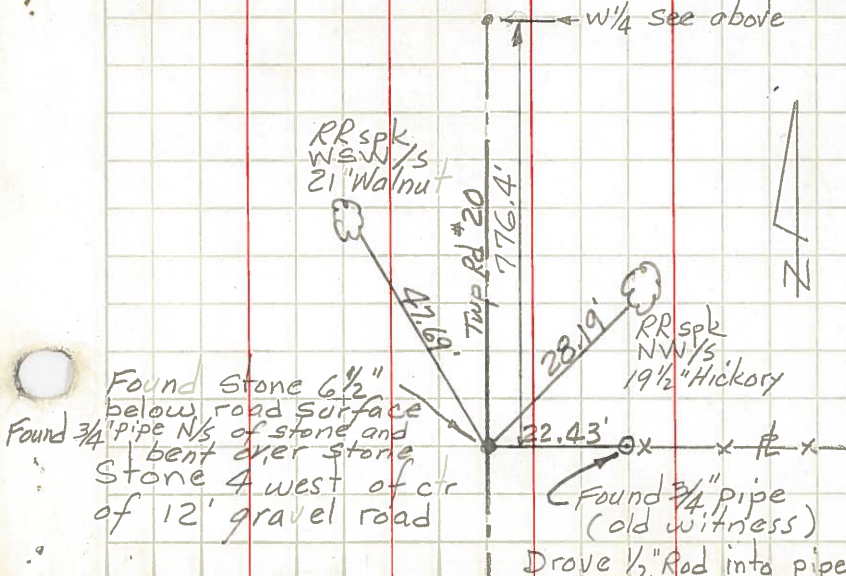 W1/4 See above
RR spk
WSW/s
21" Walnut
Twp Rd #20
776.4'
47.69'
28.19'
RR spk
NW/s
19 1/2" Hickory
N
Found Stone 6 1/2"
below road surface
Found 3/4" pipe N/s of stone and
bent over stone
Stone 4 west of ctr
of 12' gravel road
22.43'
x x ⅊ x
Found 3/4" pipe
(old witness)
Drove 1/2" Rod into pipe